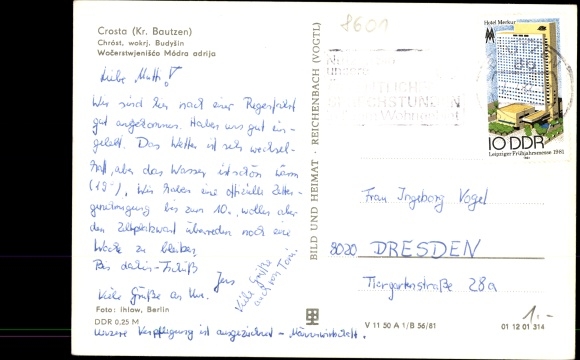 Crosta (Kr. Bautzen)
Chróst, wokrj. Budyšin
Wočerstwjenišćo Módra adrija
8601
Liebe Mutti!
Wir sind hier nach einer Regenfahrt
gut angekommen. Haben uns gut ein-
gelebt. Das Wetter ist sehr wechsel-
haft, aber das Wasser ist schön warm
(19°). Wir haben eine offizielle Zelter-
genehmigung bis zum 10., wollen aber
den Zeltplatzwart überreden noch eine
Woche zu bleiben.
Bis dahin - Tschüß
Jens
Viele Grüße an Uw.
Viele Grüße
auch von Toni.
Foto: Ihlow, Berlin
DDR 0,25 M
Unsere Verpflegung ist ausgezeichnet - Männerwirtschaft.
BILD UND HEIMAT · REICHENBACH (VOGTL)
unsere
SPRECHSTUNDEN
Hotel Merkur
10 DDR
Leipziger Frühjahrsmesse 1981
Frau Ingeborg Vogel
8020 DRESDEN
Tiergartenstraße 28a
V 11 50 A 1/B 56/81
01 12 01 314
1.-